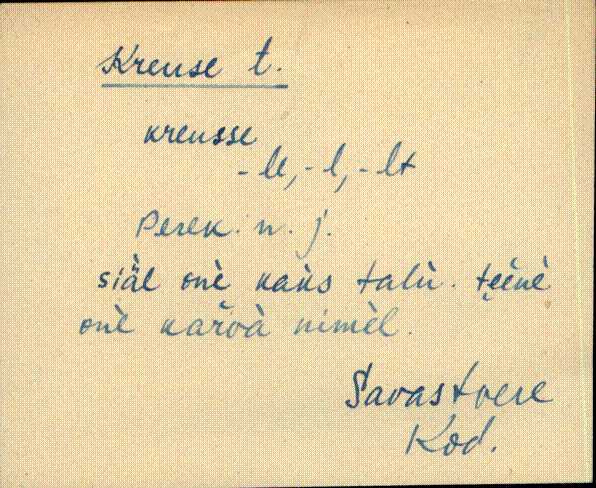 Kreuse t.
kreusse
-le, -l, -lt
Perek. n. j.
siäl onè kaks talù. tẹẹ̀nè
onè karvà nimèl.
Savastvere
Kod.